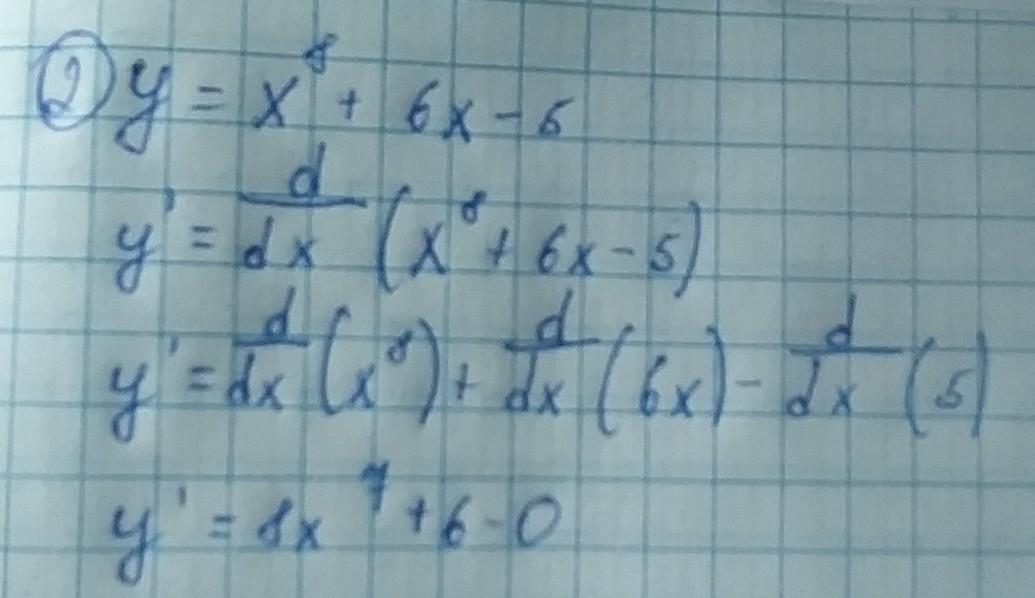 ② y = x⁸ + 6x - 5
y' = d/dx (x⁸ + 6x - 5)
y' = d/dx (x⁸) + d/dx (6x) - d/dx (5)
y' = 8x⁷ + 6 - 0